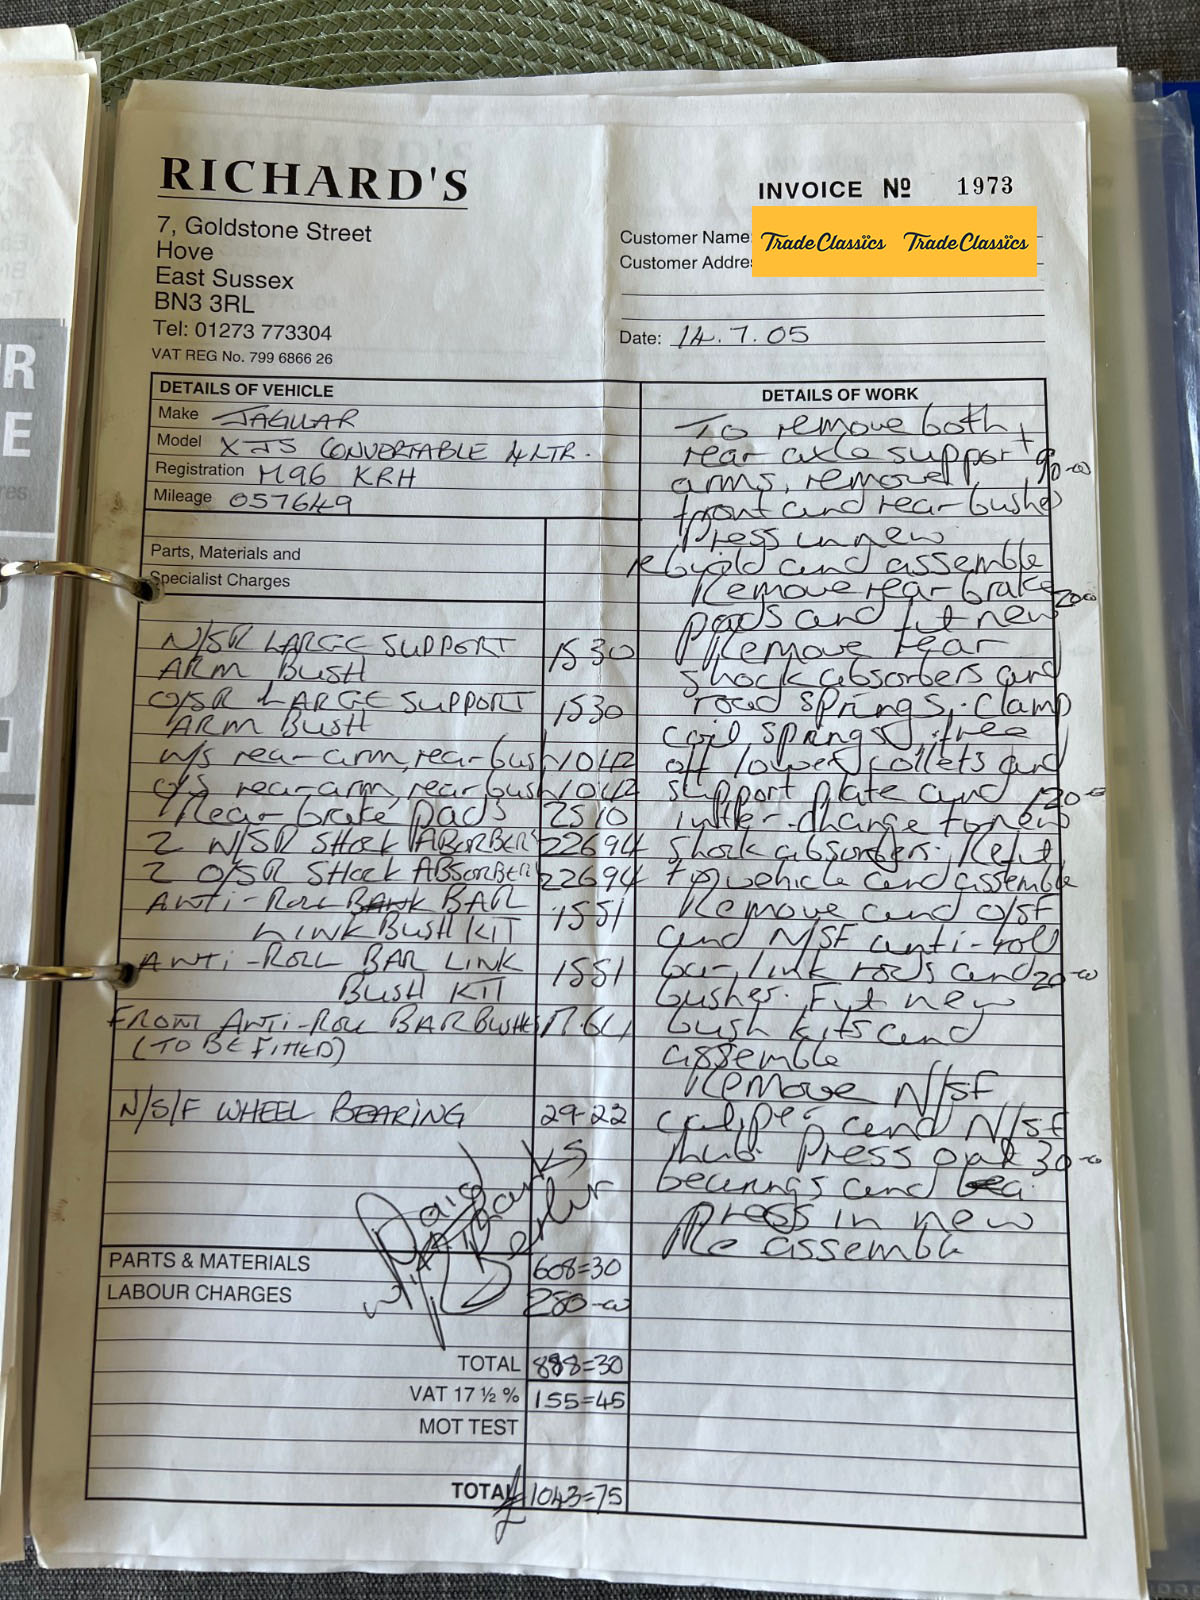 RICHARD'S
7, Goldstone Street
Hove
East Sussex
BN3 3RL
Tel: 01273 773304
VAT REG No. 799 6866 26
INVOICE Nº 1973
Customer Name:
Trade Classics Trade Classics
Customer Addre
Date: 14.7.05
DETAILS OF VEHICLE
Make JAGUAR
Model XJS CONVERTABLE 4 LTR.
Registration M96 KRH
Mileage 057649
Parts, Materials and
Specialist Charges
N/SR LARGE SUPPORT
ARM BUSH 1530
O/SR LARGE SUPPORT
ARM BUSH 1530
N/S rear arm, rear bush 1042
O/S rear arm, rear bush 1042
Rear brake pads 2510
2 N/SR SHOCK ABSORBERS 22694
2 O/SR SHOCK ABSORBER 22694
ANTI-ROLL BAR
LINK BUSH KIT 1551
ANTI-ROLL BAR LINK
BUSH KIT 1551
FRONT ANTI-ROLL BAR BUSHES 17.64
(TO BE FITTED)
N/S/F WHEEL BEARING 29-22
Paid
PARTS & MATERIALS 608=30
LABOUR CHARGES 280-00
TOTAL 888=30
VAT 17 ½ % 155=45
MOT TEST
TOTAL £1043=75
DETAILS OF WORK
To remove both
rear axle support +
arms, remove 90-00
front and rear bushes
Press in new
rebuild and assemble
Remove rear brake
pads and fit new 20-00
Remove rear
shock absorbers and
road springs, clamp
coil springs, free
off lower collets and
support plate and 120-00
inter-change to new
shock absorbers. Refit
to vehicle and assemble
Remove and O/SF
and N/SF anti-roll
bar link rods and 20-00
bushes. Fit new
bush kits and
assemble
Remove N/SF
caliper and N/SF
hub. Press out 30-00
bearings and
Press in new
Re assemble